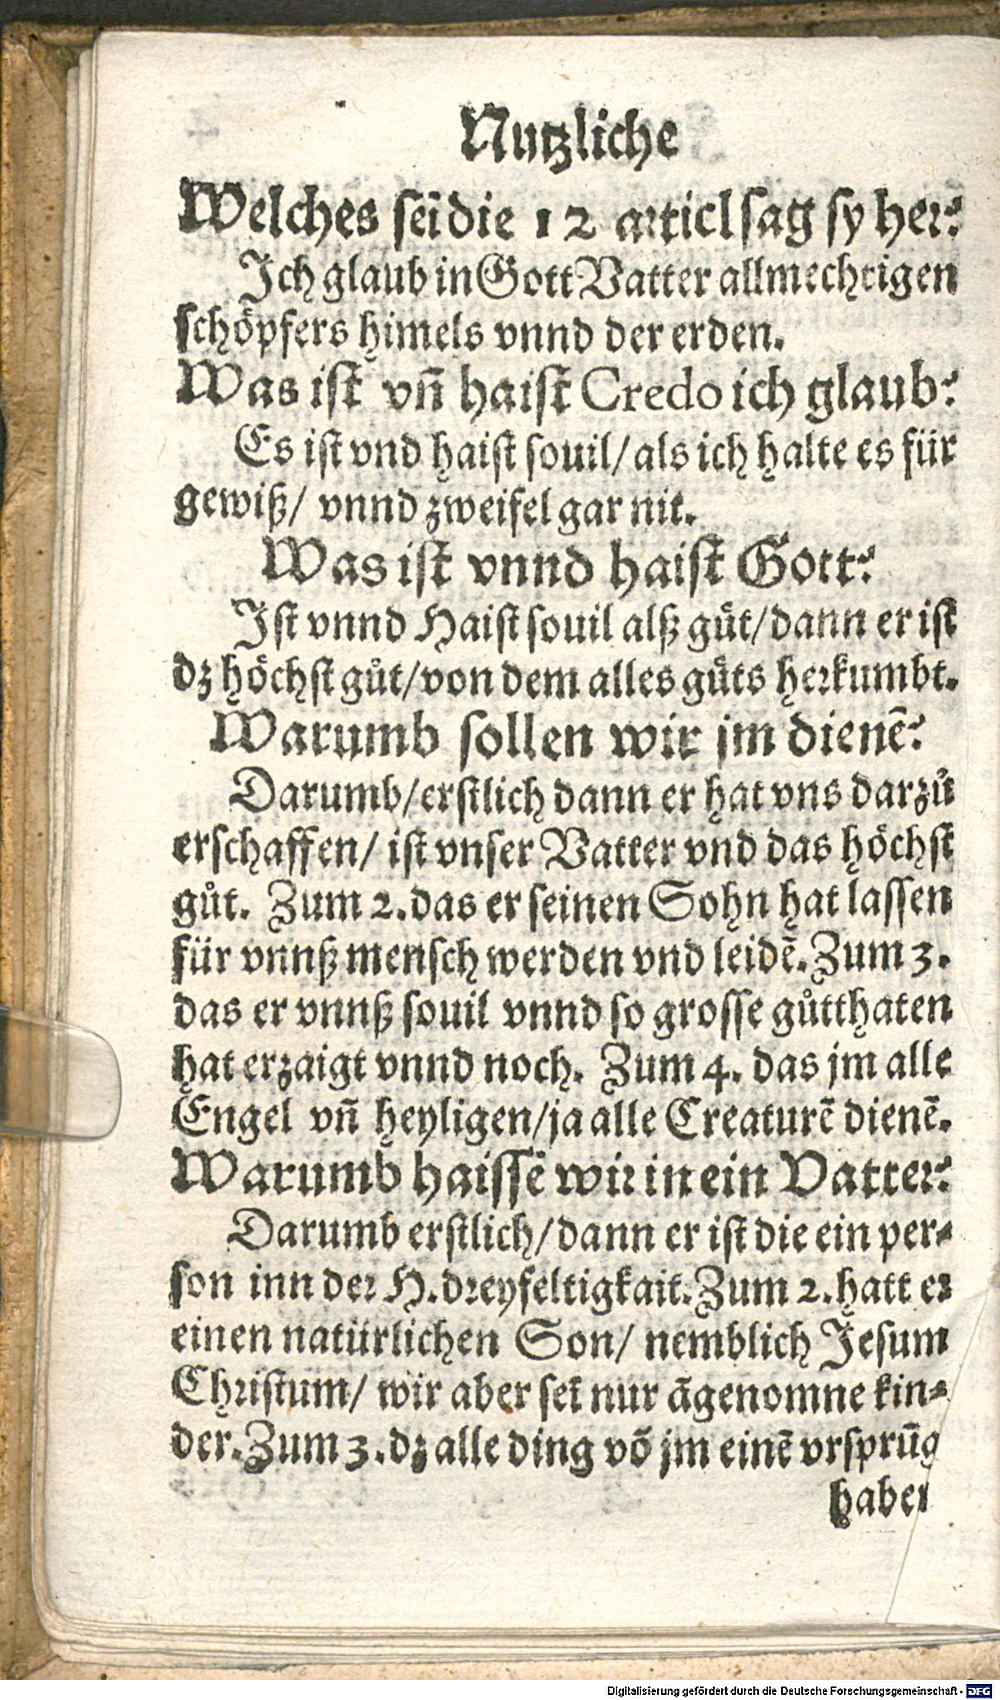 Nutzliche
Welches sei die 12 articl sag sy her?
Ich glaub in Gott Vatter allmechtigen
schöpfers himels vnnd der erden.
Was ist vñ haist Credo ich glaub?
Es ist vnd haist souil/ als ich halte es für
gewiß/ vnnd zweifel gar nit.
Was ist vnnd haist Gott?
Ist vnnd Haist souil alß gůt/dann er ist
dz höchst gůt/von dem alles gůts herkumbt.
Warumb sollen wir jm dienẽ?
Darumb/erstlich dann er hat vns darzů
erschaffen/ ist vnser Vatter vnd das höchst
gůt. Zum 2. das er seinen Sohn hat lassen
für vnnß mensch werden vnd leidẽ. Zum 3.
das er vnnß souil vnnd so grosse gůtthaten
hat erzaigt vnnd noch. Zum 4. das jm alle
Engel vñ heyligen/ja alle Creaturẽ dienẽ.
Warumb haissẽ wir in ein Vatter?
Darumb erstlich/dann er ist die ein per-
son inn der H. dreyfeltigkait. Zum 2. hatt er
einen natürlichen Son/ nemblich Jesum
Christum/ wir aber sei nur ãgenomne kin-
der. Zum 3. dz alle ding võ jm einẽ vrsprũg
haben
Digitalisierung gefördert durch die Deutsche Forschungsgemeinschaft - DFG